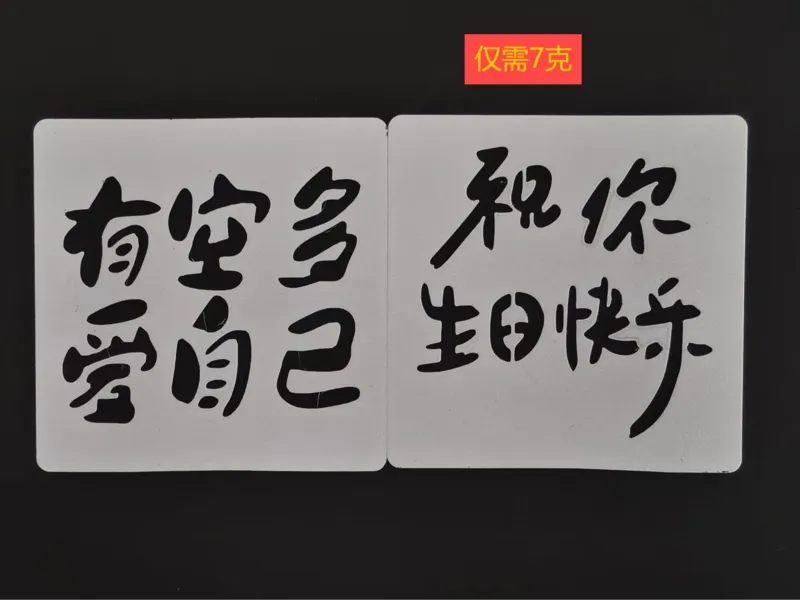 仅需7克
有空多
爱自己
祝你
生日快乐